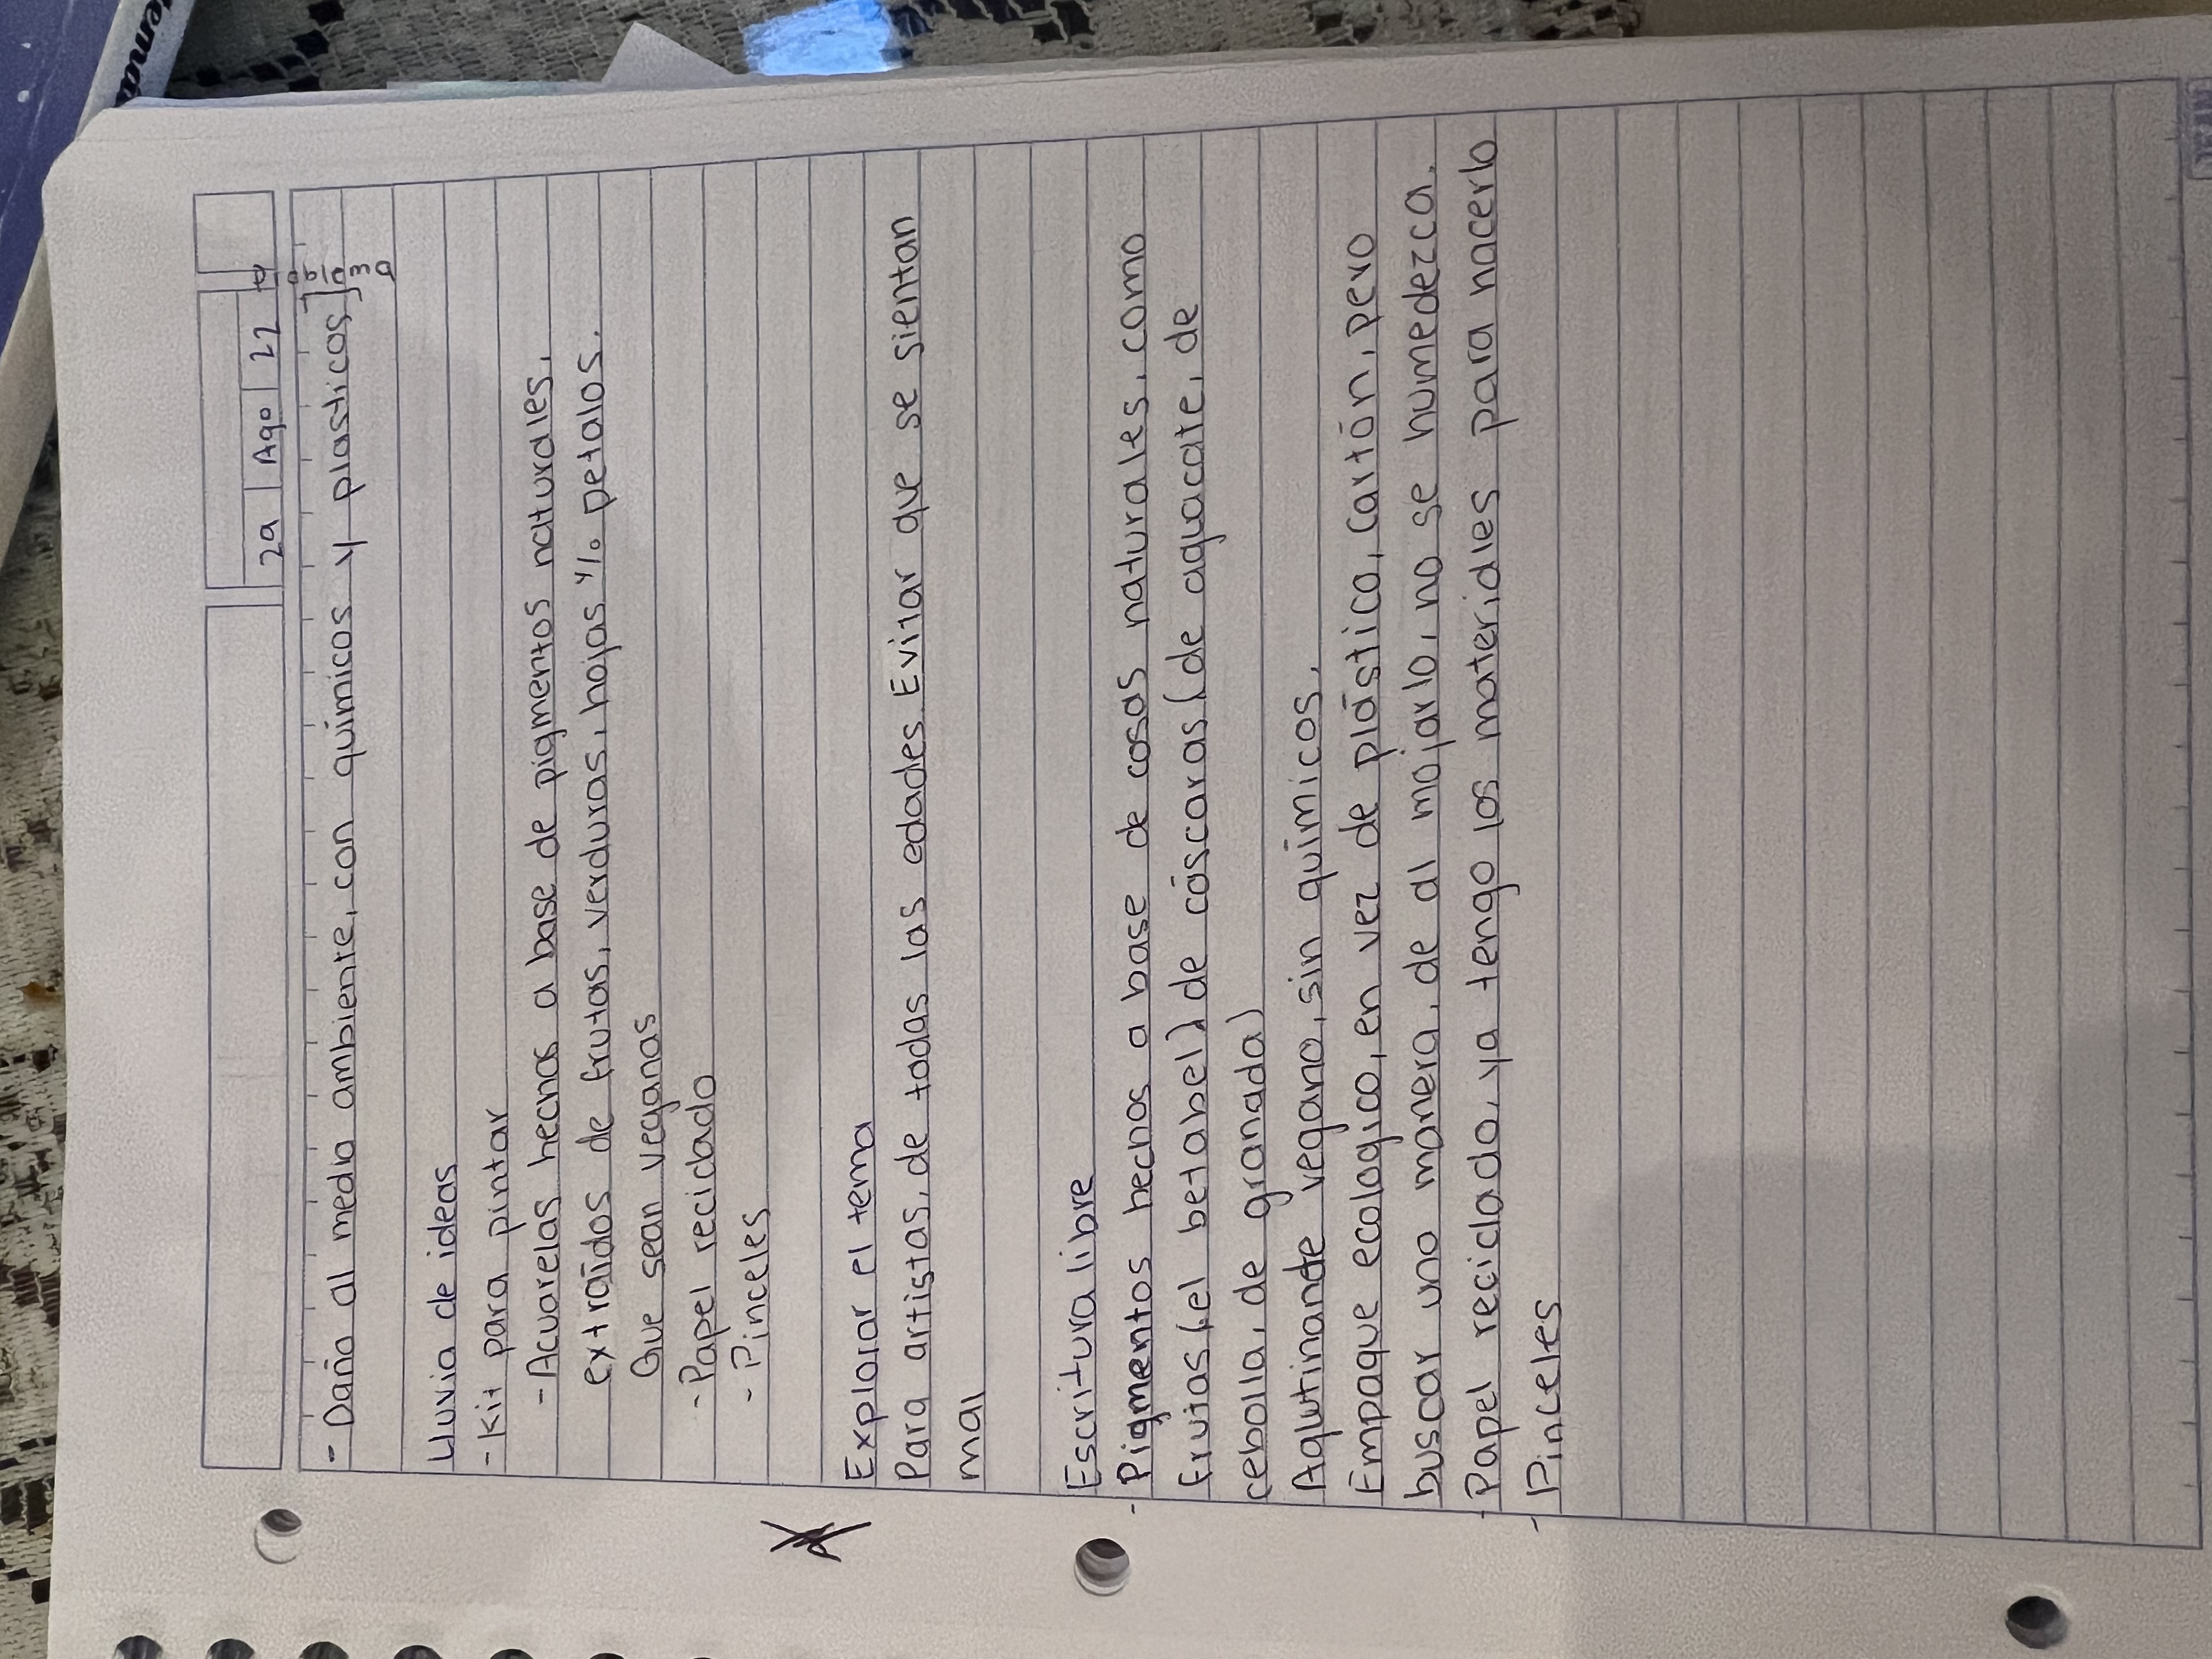 29 Ago 22
- Daño al medio ambiente, con químicos y plasticos]
Lluvia de ideas
- Kit para pintar
- Acuarelas hechas a base de pigmentos naturales,
extraídos de frutas, verduras, hojas y/o petalos.
Que sean veganas
- Papel reciclado
- Pinceles
Explorar el tema
Para artistas, de todas las edades. Evitar que se sientan
mal
Escritura libre
- Pigmentos hechos a base de cosas naturales, como
frutas (el betabel) de cáscaras (de aguacate, de
cebolla, de granada)
Aglutinante vegano, sin químicos,
Empaque ecologico, en vez de plástico, cartón, pero
buscar una manera, de al mojarlo, no se humedezca.
- Papel reciclado, ya tengo los materiales para hacerlo
- Pinceles